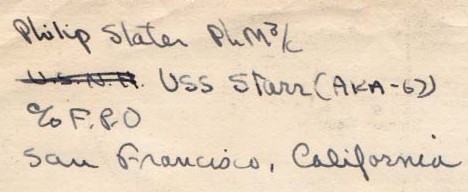 Philip Slater PhM3/c
U.S.N.H. USS Starr (AKA-67)
c/o F.P.O
San Francisco, California